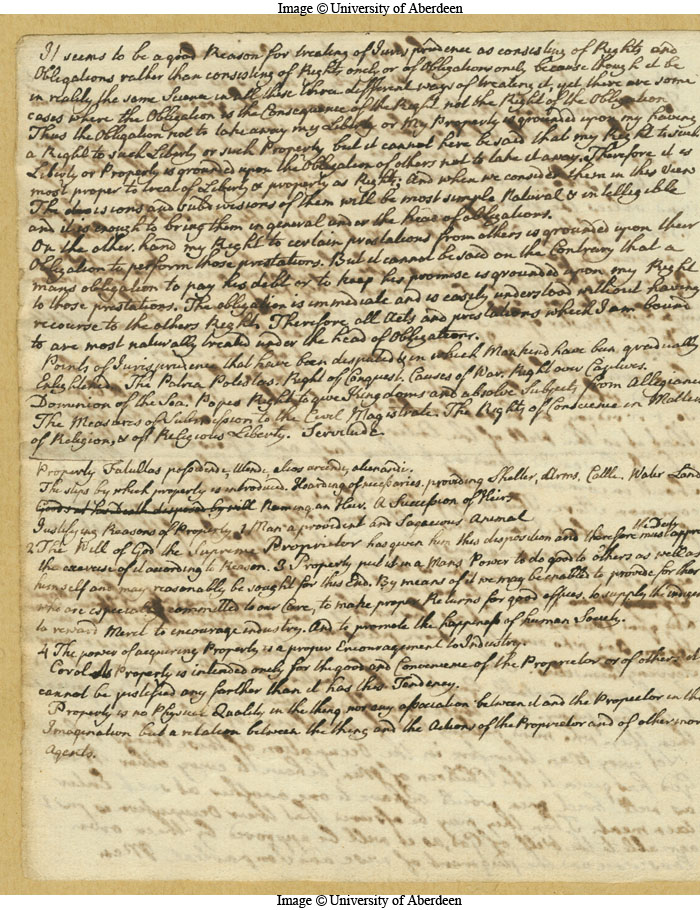 Image © University of Aberdeen
It seems to be a good Reason for treating of Jurisprudence as consisting of Rights and
Obligations rather than consisting of Rights onely or of Obligations onely because though it be
in reality the same Science in all these three different ways of treating it, yet there are some
cases where the Obligation is the Consequence of the Right not the Right of the Obligation
Thus the Obligation not to take away my Liberty or my Property is grounded upon my having
a Right to such Liberty or such Property but it cannot here be said that my Right to such
Liberty or Property is grounded upon the Obligation of others not to take it away. Therefore it is
most proper to treat of Liberty & property as Rights; And when we consider them in this View
The divisions and subdivisions of them will be most simple Natural & intelligible
and it is enough to bring them in general under the head of obligations.
On the other hand my Right to certain prestations from others is grounded upon their
Obligation to perform those prestations. But it cannot be said on the Contrary that a
mans obligation to pay his debt or to keep his promise is grounded upon my Right
to those prestations. The obligation is immediate and is easely understood without having
recourse to the others Right. Therefore all Acts and prestations which I am bound
to are most naturally treated under the head of Obligations.
Points of Jurisprudence that have been disputed & in which Mankind have been gradually
Enlightened. The Patria Potestas. Right of Conquest. Causes of War. Right over Captives.
Dominion of the Sea. Popes Right to give Kingdoms and absolve Subjects from Allegiance
The Measures of Submission to the Civil Magistrate. The Rights of Conscience in Matters
of Religion, & of Religious Liberty. Servitude
Property Facultas possidendi, utendi, alios arcendi, alienandi.
The steps by which property is introduced. Hoarding of necessaries, providing Shelter, Arms, Cattle. Water Land
Goods at his Death disposed by will Naming an Heir. A Succession of Heirs
Justifying Reasons of Property. 1 Man a provident and Sagacious Animal
2 The Will of God the Supreme Proprietor has given him this disposition and therefore must
the exercise of it according to Reason. 3 Property puts it in a Mans Power to do good to others as well as
himself and may reasonably be sought for this End. By means of it we may be enabled to provide for those
who are especially committed to our Care, to make proper Returns for good offices. to supply the indigent
to reward Merit to encourage industry. And to promote the happiness of human Society.
4 The power of acquiring Property is a proper Encouragement to Industry.
Corol As Property is intended onely for the good and Convenience of the Proprietor or of others it
cannot be justified any farther than it has this Tendency.
Property is no Physical Quality in the thing nor any association between it and the Proprietor in the
Imagination but a relation between the thing and the Actions of the Proprietor and of other moral
Agents.
Image © University of Aberdeen